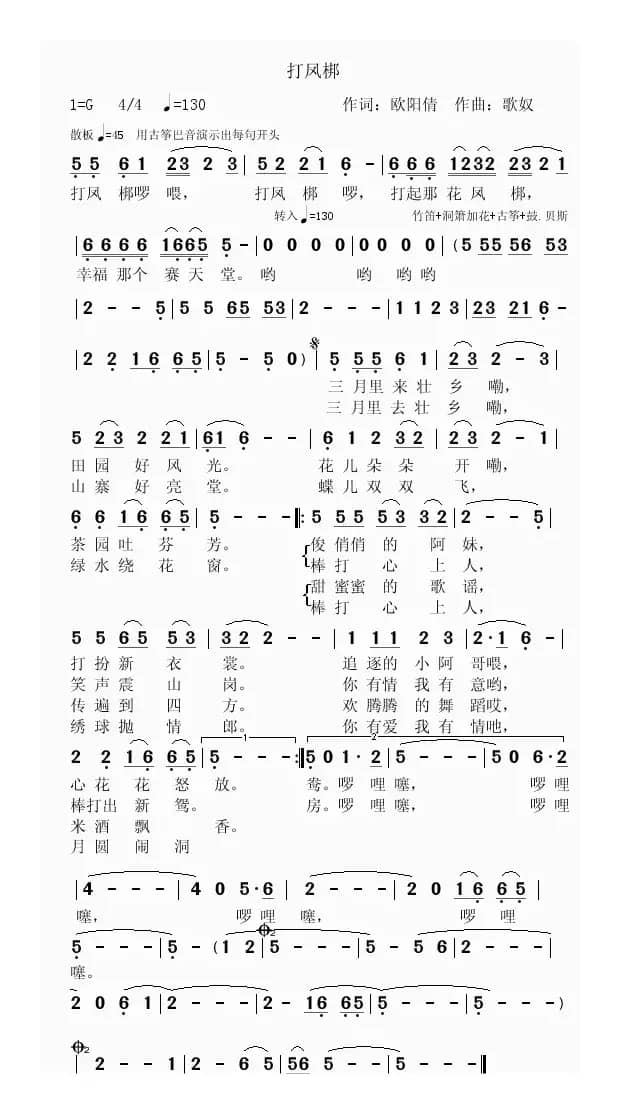 打凤梆
1=G 4/4 ♩=130 作词：欧阳倩 作曲：歌奴
散板 ♩=45 用古筝巴音演示出每句开头
5 5 6 1 23 2 3 | 5 2 2 1 6 - | 6 6 6 1232 23 2 1
打凤 梆啰 喂， 打凤 梆 啰， 打起那 花 凤 梆，
转入 ♩=130 竹笛+洞箫加花+古筝+鼓.贝斯
| 6 6 6 6 1665 5 - | 0 0 0 0 | 0 0 0 0 | (5 55 56 53
幸福 那个 赛 天 堂。哟 哟 哟 哟
| 2 - - 5 | 5 5 65 53 | 2 - - - | 1 1 2 3 | 23 21 6 -
| 2 2 16 65 | 5 - 5 0) | 5 55 6 1 | 23 2 - 3
三 月里 来 壮 乡 嘞，
三 月里 去 壮 乡 嘞，
5 23 2 21 | 61 6 - - | 6 1 2 32 | 23 2 - 1
田 园 好 风 光。 花 儿 朵 朵 开 嘞，
山 寨 好 亮 堂。 蝶 儿 双 双 飞，
6 6 16 65 | 5 - - - ‖: 5 55 53 32 | 2 - - 5
茶 园 吐 芬 芳。 俊 俏俏 的 阿 妹，
绿 水 绕 花 窗。 棒 打 心 上 人，
甜 蜜蜜 的 歌 谣，
棒 打 心 上 人，
5 5 65 53 | 32 2 - - | 1 11 2 3 | 2·1 6 -
打 扮 新 衣 裳。 追 逐的 小 阿 哥喂，
笑 声 震 山 岗。 你 有情 我 有 意哟，
传 遍 到 四 方。 欢 腾腾 的 舞 蹈哎，
绣 球 抛 情 郎。 你 有爱 我 有 情吔，
1 2
2 2 16 65 | 5 - - - :‖ 5 0 1·2 | 5 - - - | 5 0 6·2
心 花 花 怒 放。 鸯。啰 哩 噻， 啰 哩
棒打 出 新 鸳。 房。啰 哩 噻， 啰 哩
米 酒 飘 香。
月 圆 闹 洞
| 4 - - - | 4 0 5·6 | 2 - - - | 2 0 16 65 |
噻， 啰 哩 噻， 啰 哩
2
5 - - - | 5 - (1 2 | 5 - - - | 5 - 5 6 | 2 - - -
噻。
2 0 6 1 | 2 - - - | 2 - 16 65 | 5 - - - | 5 - - - )
2
| 2 - - 1 | 2 - 6 5 | 56 5 - - | 5 - - - ‖